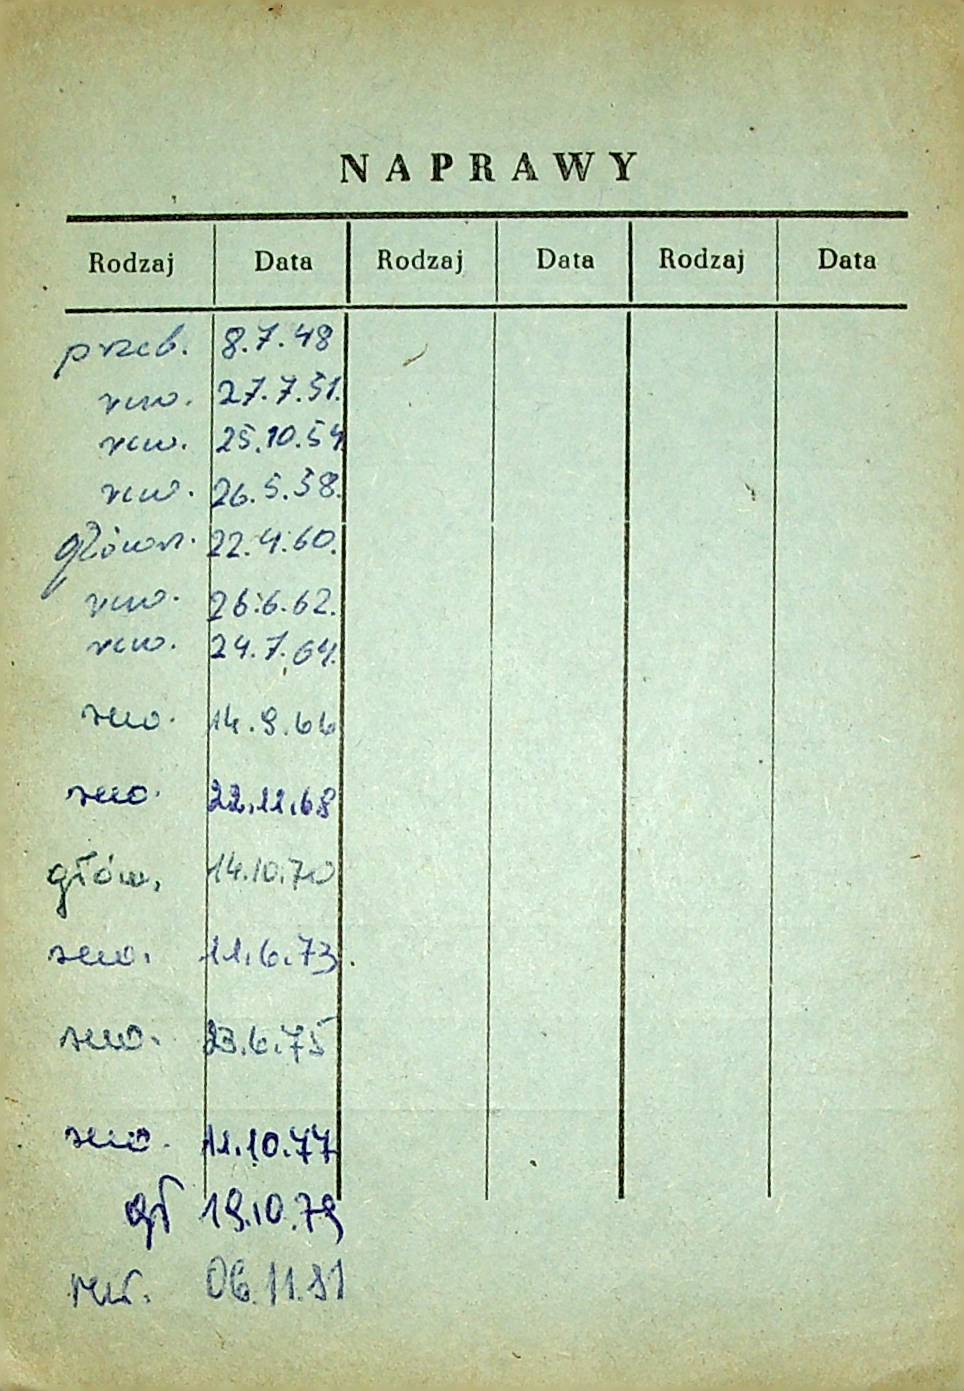 NAPRAWY
Rodzaj Data Rodzaj Data Rodzaj Data
przeb. 8.7.48
rew. 27.7.51.
rew. 25.10.54
rew. 26.5.58.
główn. 22.4.60.
rew. 26.6.62.
rew. 24.7.64.
rew. 14.9.66
rew. 22.11.68
głów. 14.10.70
rew. 11.6.73.
rew. 23.6.75
rew. 11.10.77
gł 19.10.79
rew. 06.11.81